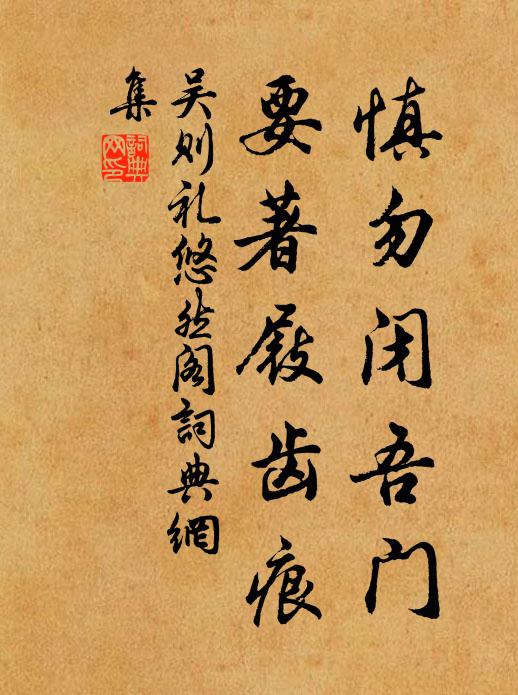 慎勿闭吾门
要著屐齿痕
吴则礼悠然阁詞典網
集
詞典
网印